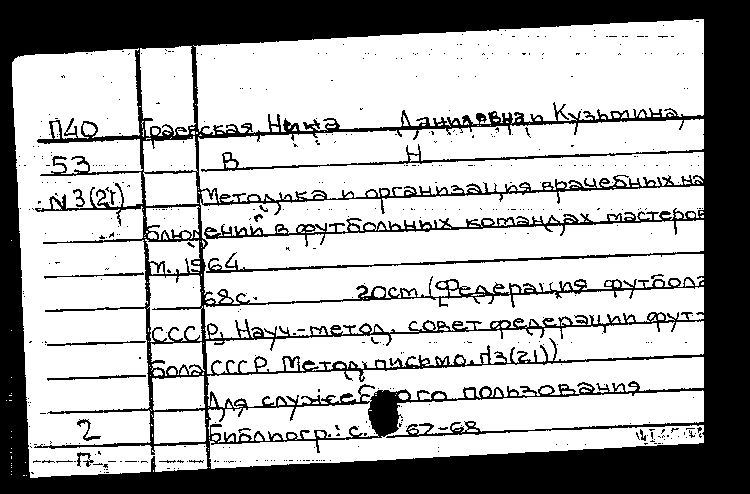 П40 Граевская, Нина Даниловна и Кузьмина,
53 В Н
N3(21) Методика и организация врачебных на
блюдений в футбольных командах мастеров
М., 1964.
68с. 20см. (Федерация футбола
СССР. Науч.-метод. совет федерации фут-
бола СССР. Метод. письмо. N3(21))
Для служебного пользования
2 Библиогр.: с. 67-68
П: